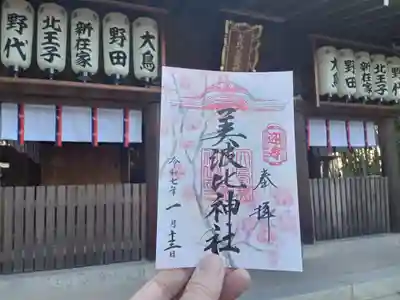 野代
北王子
新在家
野田
大鳥
野田
新在家
北王子
奉拝
美波比神社
令和七年一月十三日